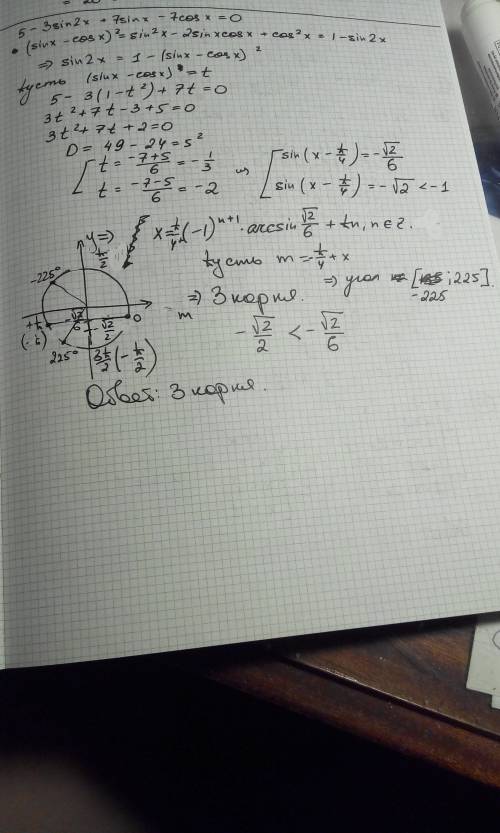 5 - 3sin2x + 7sinx - 7cosx = 0
• (sinx - cosx)² = sin²x - 2sinxcosx + cos²x = 1 - sin2x
⇒ sin2x = 1 - (sinx - cosx)²
Пусть (sinx - cosx) = t
5 - 3(1 - t²) + 7t = 0
3t² + 7t - 3 + 5 = 0
3t² + 7t + 2 = 0
D = 49 - 24 = 5²
t = (-7+5)/6 = -1/3
t = (-7-5)/6 = -2
sin(x - π/4) = -√2/6
sin(x - π/4) = -√2 < -1
x = π/4 + (-1)ⁿ⁺¹ · arcsin √2/6 + πn, n ∈ Z.
Пусть m = -π/4 + x
⇒ угол [-225; 225].
⇒ 3 корня.
-√2/2 < -√2/6
y
π/2
-225°
-√2/6
-√2/2
0
m
225°
3π/2 (-π/2)
Ответ: 3 корня.